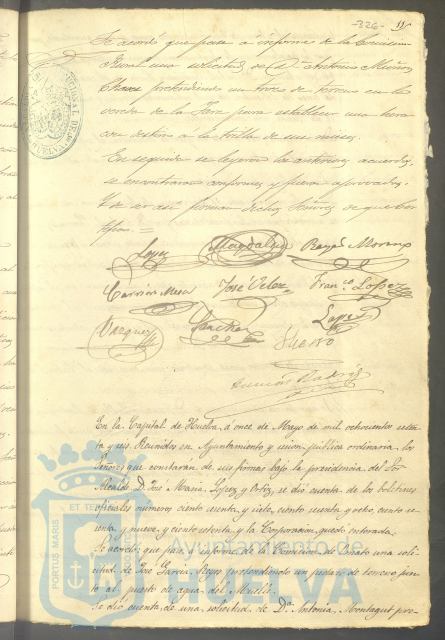 -326- 11
Se acordó que pase a informe de la Comision
Rural una solicitud de Dn. Antonio Muñoz
Chaves pretendiendo un trozo de terreno en la
vereda de la para establecer una hera
con destino a la trilla de sus mieses.
En seguida se leyeron los anteriores acuerdos,
se encontraron conformes y fueron aprobados.
de ser así firman dichos Señores de que Cer
tifico. =
Lopez Magdalena Rayo Moreno
Carrion Mesa José Velez Franco. Lopez
Vazquez Sanchez Lopez
En la Capital de Huelva á once de Mayo de mil ochocientos seten
ta y seis. Reunidos en Ayuntamiento y sesion publica ordinaria los
Señores que constaran de sus firmas bajo la presidencia del Sor
Alcalde D. José Maria Lopez y Ortiz, se dió cuenta de los boletines
oficiales números ciento sesenta y siete, ciento sesenta y ocho, ciento se
senta y nueve y ciento setenta, y la Corporacion quedo enterada.
Se acordó que pase á informe de la Comision de Ornato una soli
citud de José Garcia Reyes pretendiendo un pedazo de terreno jun
to al puesto de agua del Muelle.
Se dió cuenta de una solicitud de Da. Antonia Montagut pre-
PORTUS MARIS ET TERRE
Ayuntamiento de
HUELVA